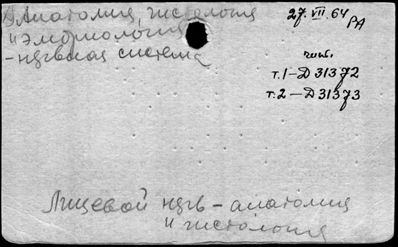 Д. Анатомия, гистология
и эмбриология
- нервная система
27.VII.64
РА
чит.
т.1 – Д 31372
т.2 – Д 31373
Лицевой нерв – анатомия
и гистология